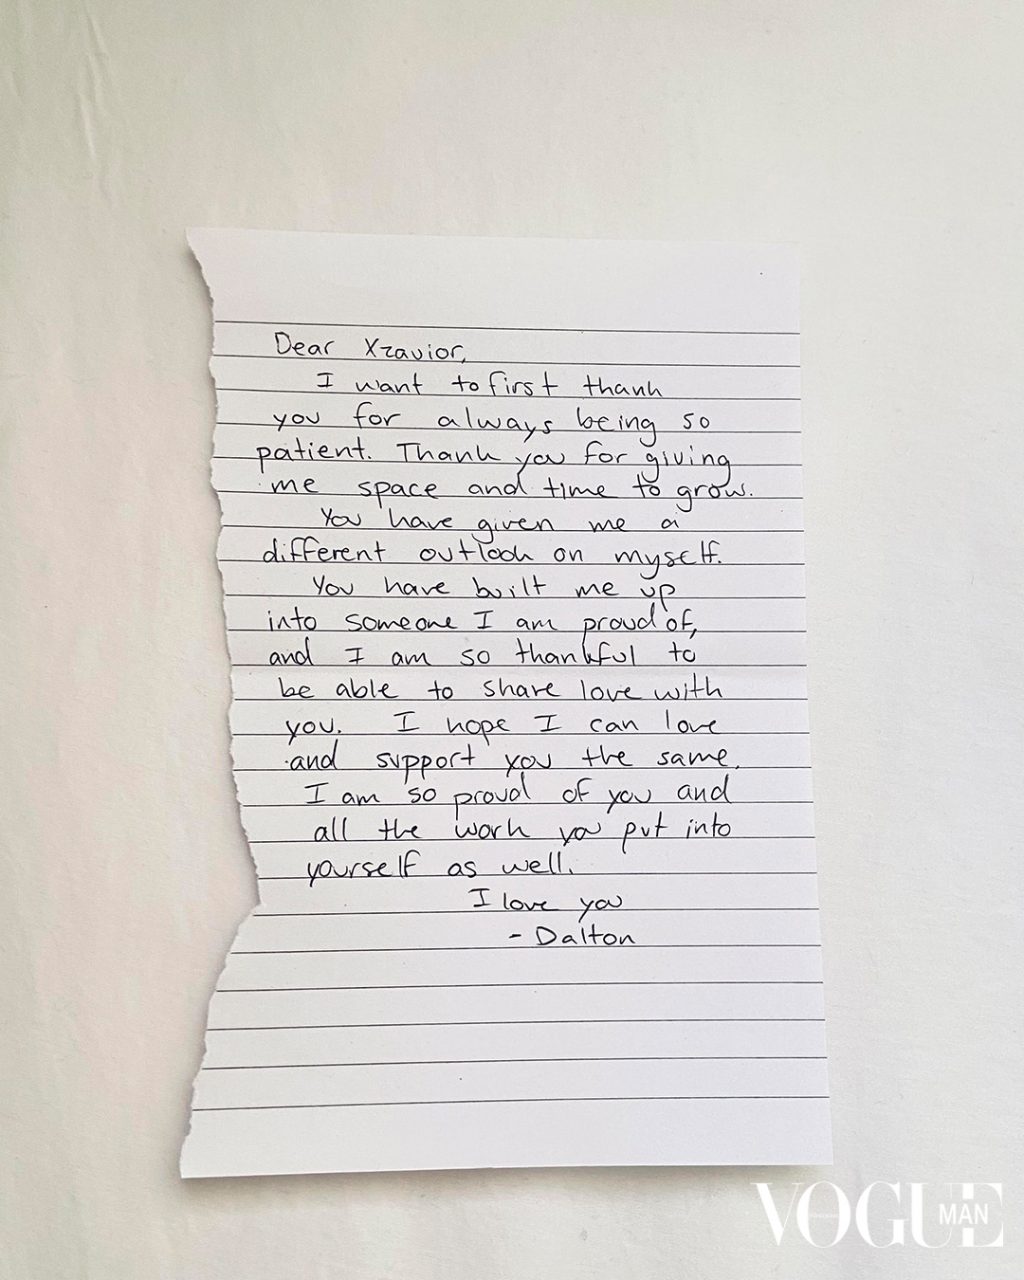 Dear Xzavior,
I want to first thank
you for always being so
patient. Thank you for giving
me space and time to grow.
You have given me a
different outlook on myself.
You have built me up
into someone I am proud of,
and I am so thankful to
be able to share love with
you. I hope I can love
and support you the same.
I am so proud of you and
all the work you put into
yourself as well.
I love you
- Dalton
VOGUE
MAN